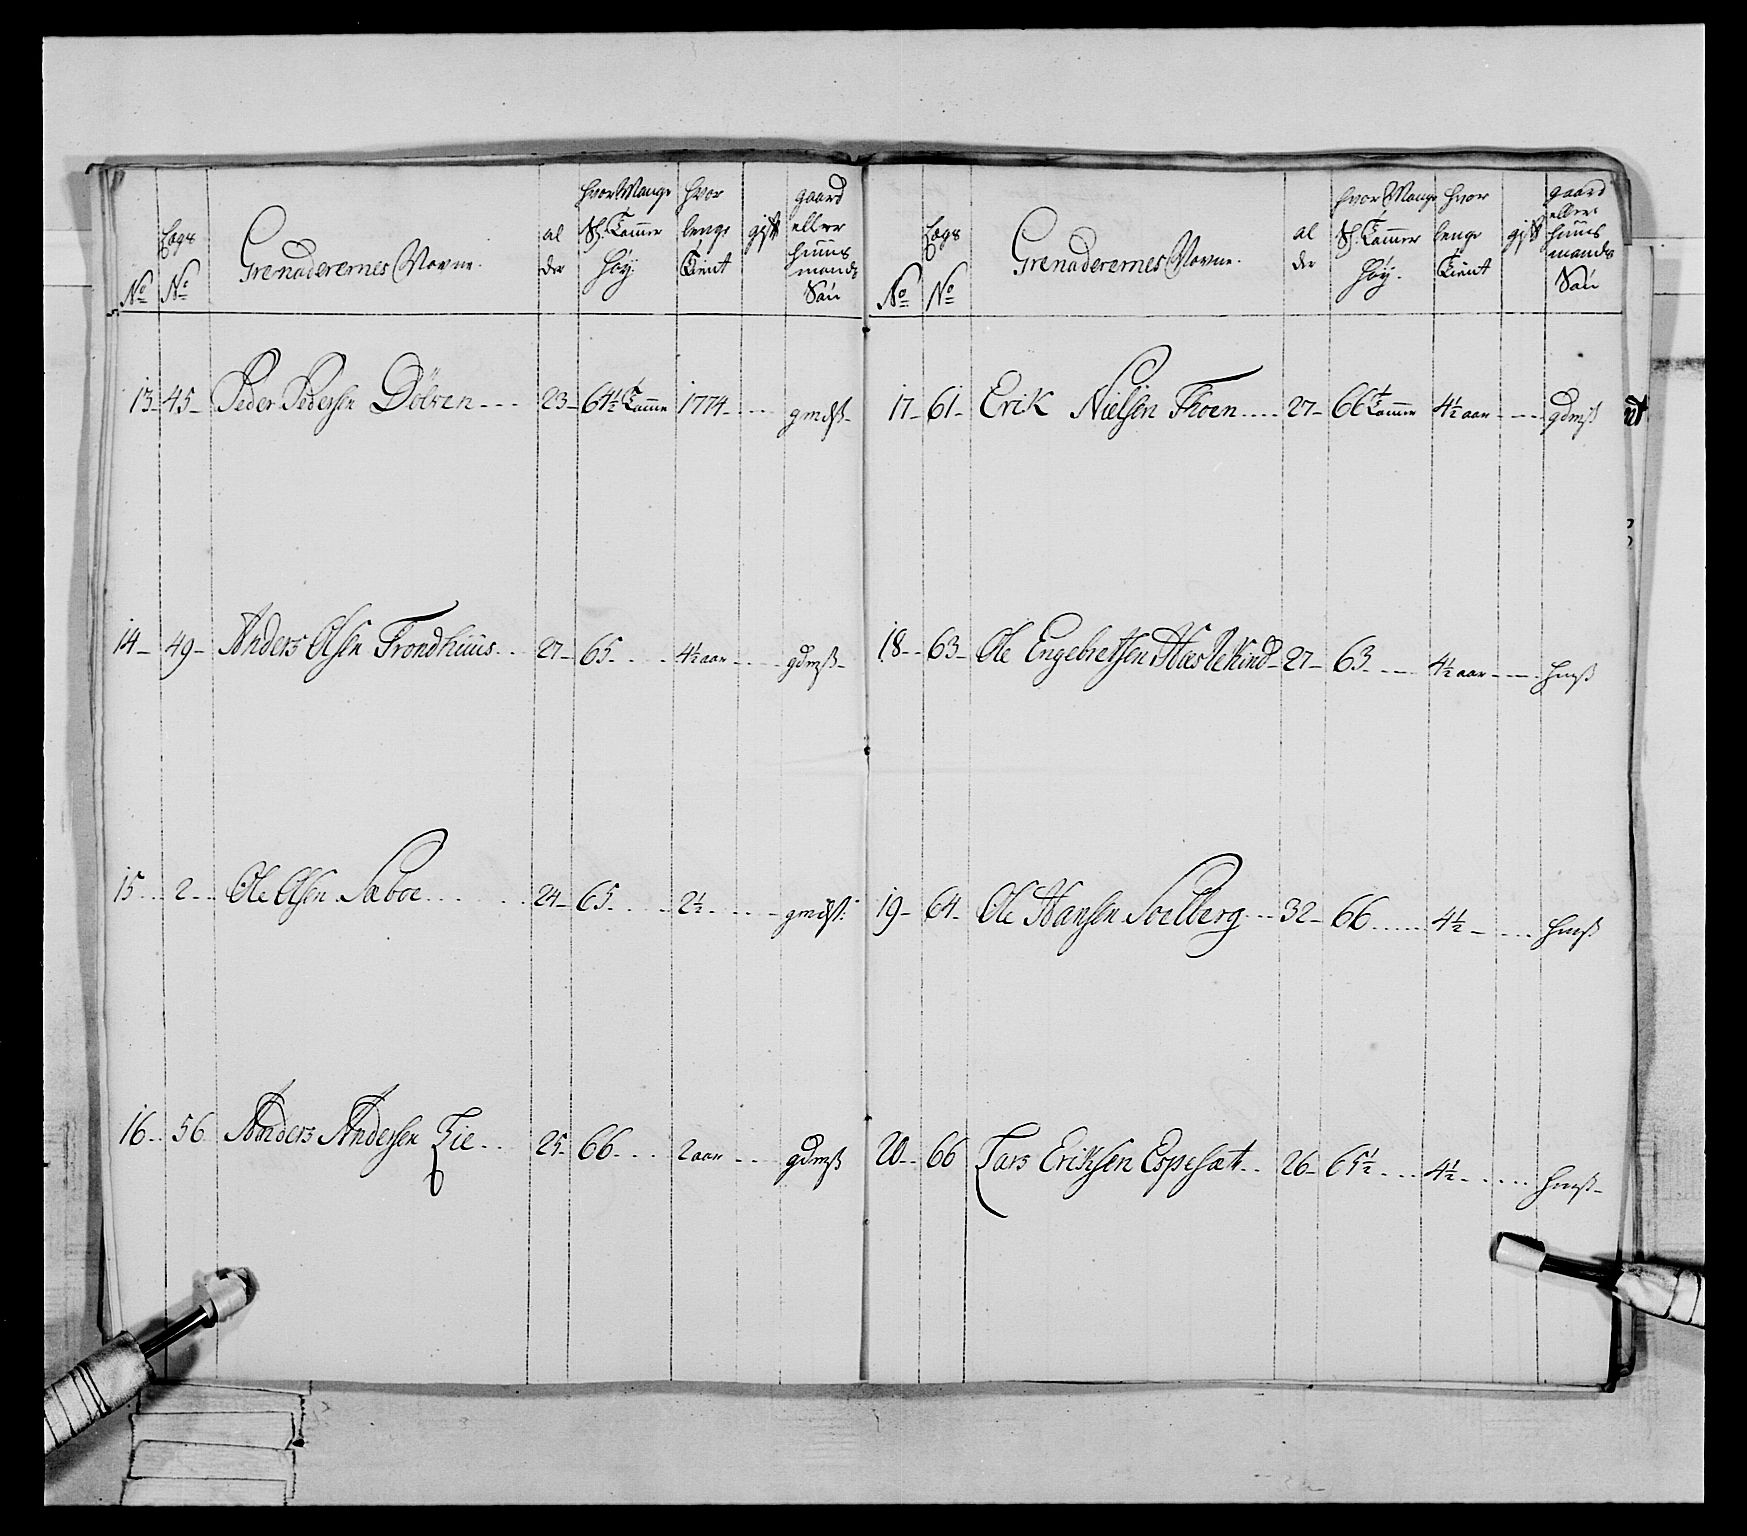 No
Legs No
Grenaderernes Navne.
al der
hvor Mange Sl. Tommer høy.
hvor lenge tient
gift
gaard eller huus mands Søn
13 - 45 - Peder Pedersen Dölven - - - 23 - 64½ Tomme 1774 - - - - gmdß -
14 - 49 - Anders Olsen Trondhuus - - 27 - 65 - - - - 4½ aar - - - - gdmß -
15 - - 2 - - Ole Olsen Sæboe - - - - 24 - 65 - - - - 2½ - - - - - gmdß
16 - - 56 Anders Andersen Lie - - 25 - 66 - - - 2 aar - - - gdmß
No
Legs No
Grenaderernes Navne.
al der
hvor Mange Sl. Tommer høy.
hvor lenge tient
gift
gaard eller huus mands Søn
17 - 61 - Erik Nielsen Thoen - - - - 27 - 66½ Tommer 4½ aar - - - - gdmß
18 - - 63 - Ole Engebretsen 27 - 63 - - - - 4½ aar - - - - hmß
19 - 64 - Ole Hansen Soelberg - - - 32 - 66 - - - - - 4½ - - - - hmß
20 - - 66 Lars Eriksen Espesæt - - 26 - 65½ - - - 4½ - - - - - hmß -